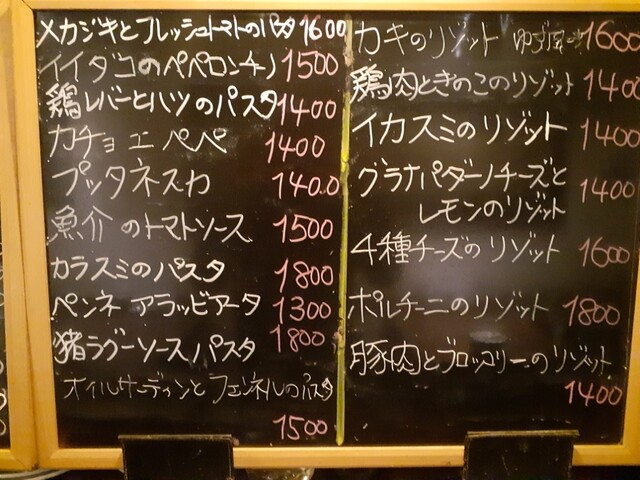 メカジキとフレッシュトマトのパスタ 1600
イイダコのペペロンチーノ 1500
鶏レバーとハツのパスタ 1400
カチョ エ ペペ 1400
プッタネスカ 1400
魚介 のトマトソース 1500
カラスミのパスタ 1800
ペンネ アラッビアータ 1300
猪ラグーソースパスタ 1800
オイルサーディンと フェンネルのパスタ
1500
カキのリゾット ゆず風味 1600
鶏肉ときのこのリゾット 1400
イカスミのリゾット 1400
グラナパダーノチーズと
レモンのリゾット 1400
4種チーズのリゾット 1600
ポルチーニのリゾット 1800
豚肉とブロッコリーのリゾット
1400